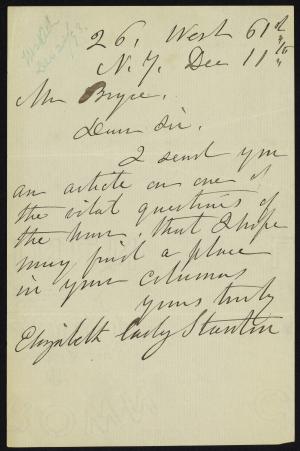 26. West 61st
N.Y. Dec 11th
Mr Bryce.
Dear Sir.
I send you
an article on one of
the vital questions of
the hour, that I hope
may find a place
in your columns
yours truly
Elizabeth Cady Stanton